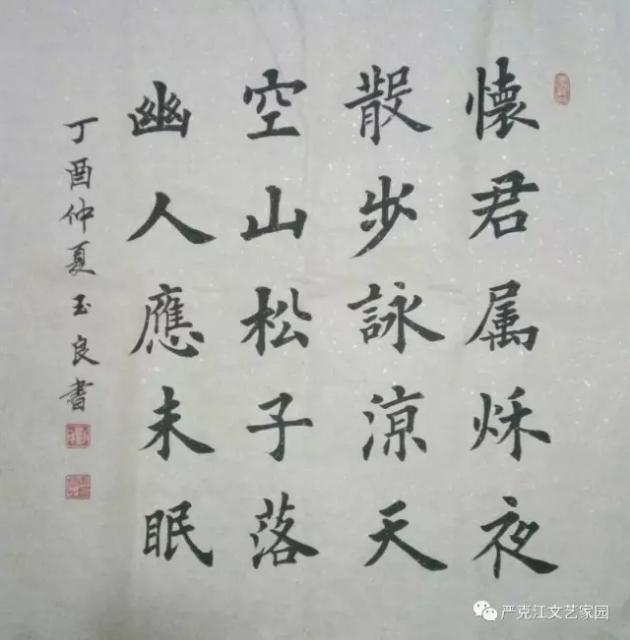 懷君属秌夜
散步詠涼天
空山松子落
幽人應未眠
丁酉仲夏玉良書
严克江文艺家园